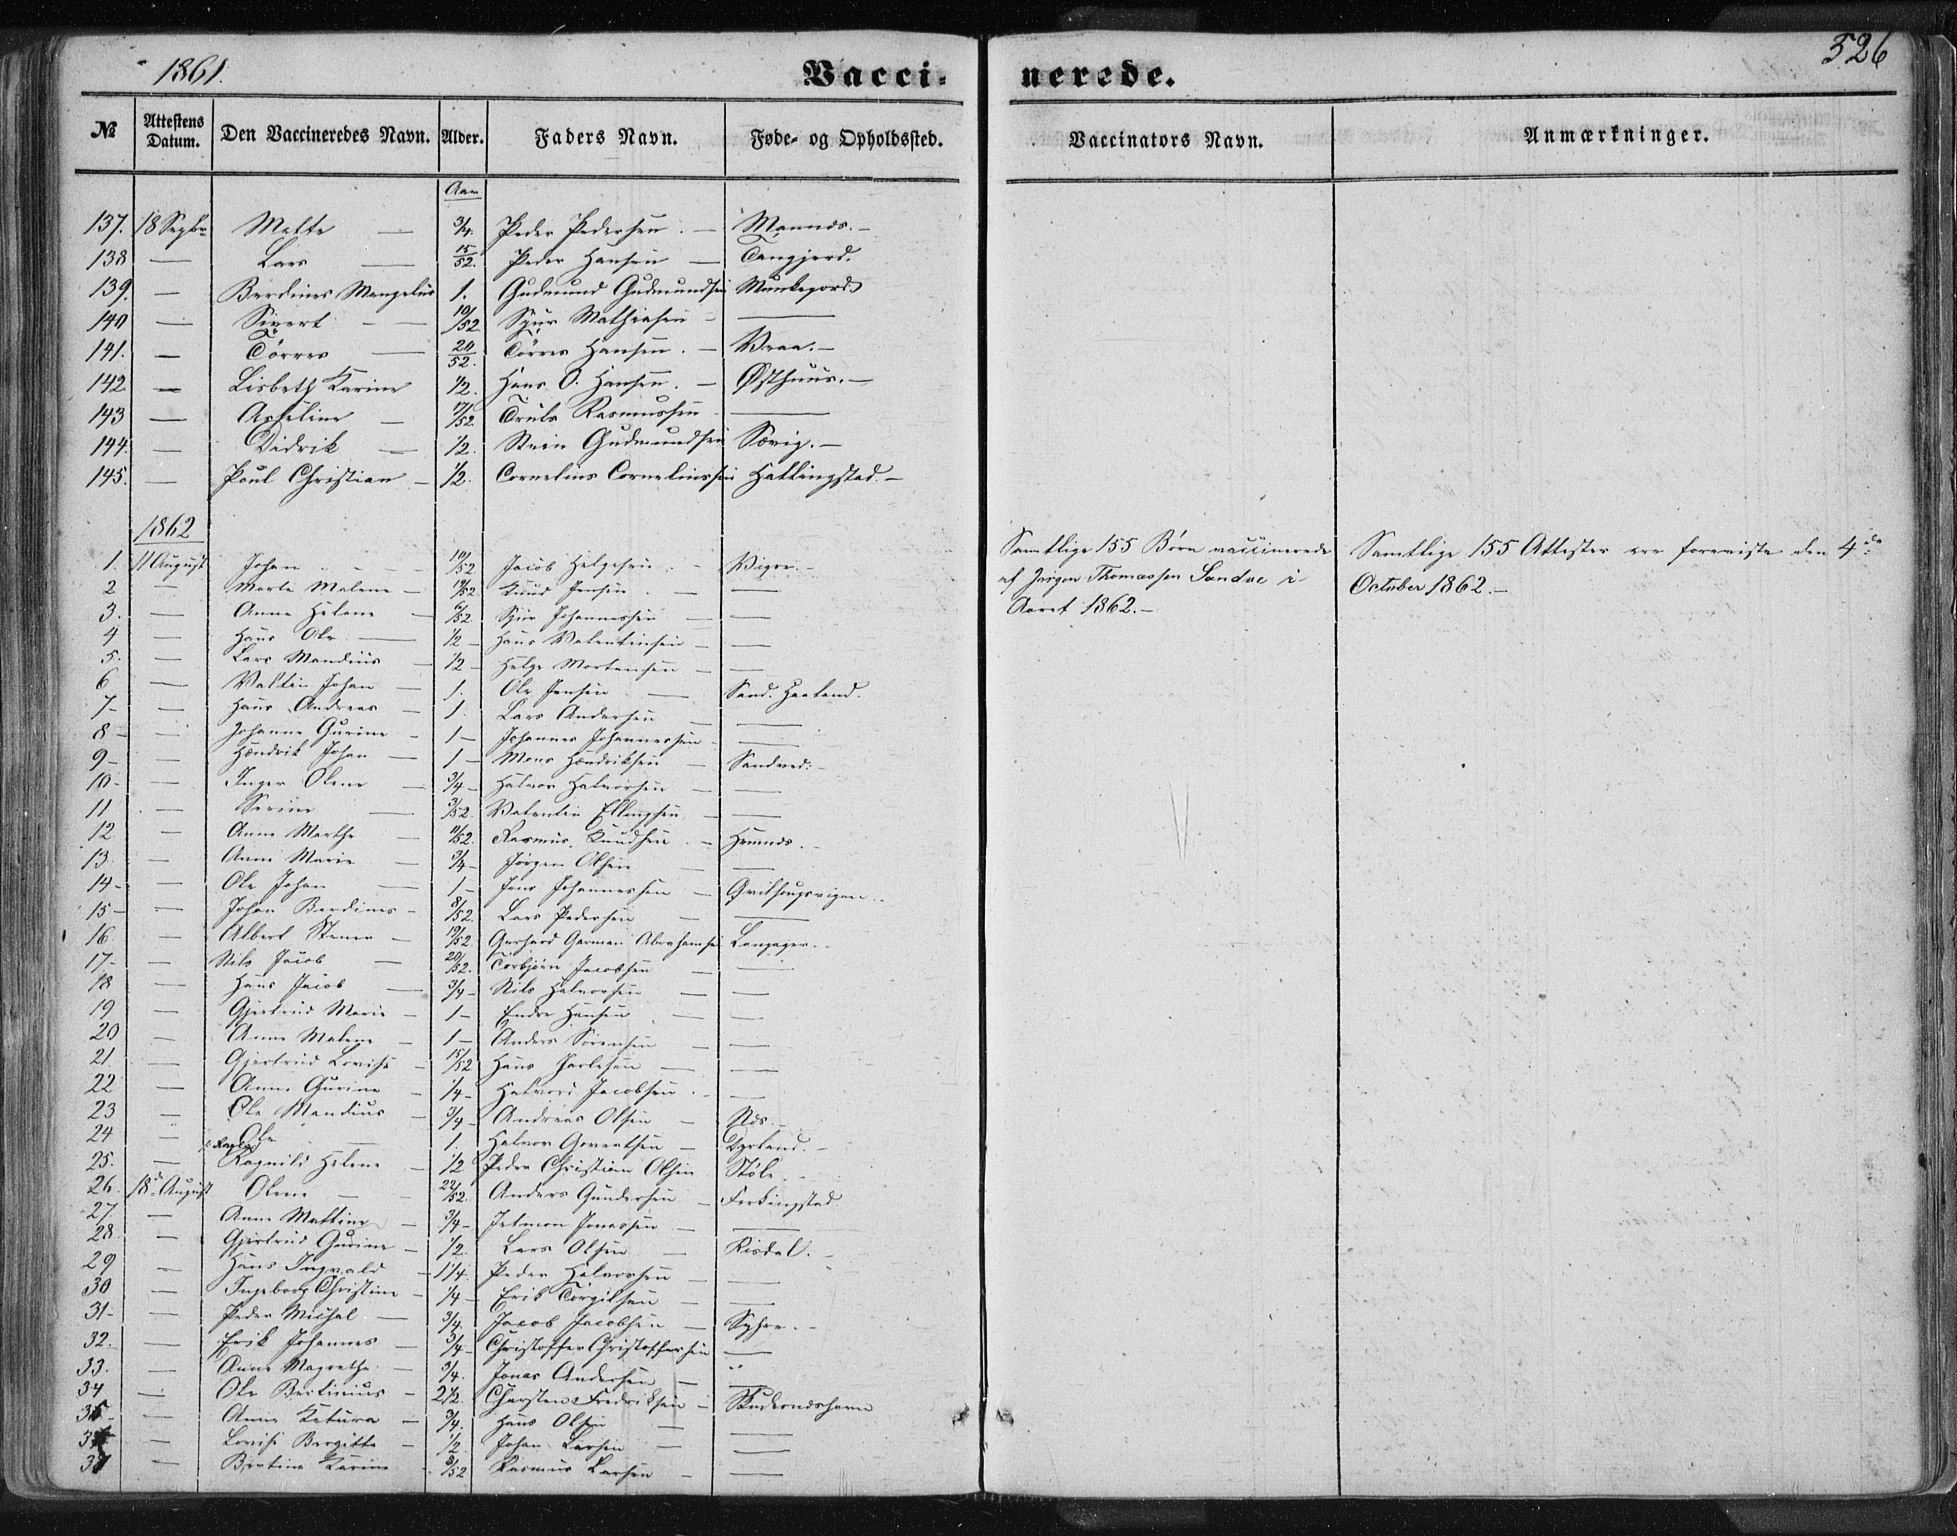 1861.
Vacci-
nerede.
526
№ Attestens Datum. Den Vaccineredes Navn. Alder. Faders Navn. Føde- og Opholdssted. Vaccinators Navn. Anmærkninger.
Aar
137. 18 Septbr Mette — 3/4. Peder Pedersen. — Mannes. —
138 — Lars — 15/52. Peder Hansen — Tangjerd.
139. — Berdines Mangelus 1. Gudmund Gudmundsen Munkejord
140 — Sivert — 10/52 Sjur Mathiasen — —
141. — Törres — 20/52. Törres Hansen. — Vraa. —
142 — Lisbeth Karine 1/2. Hans O. Hansen. — Østhuus. —
143 — Axeline — 17/52 Truls Rasmussen —
144. — Didrik — 1/2. Stein Gudmundsen Sævig. —
145. — Poul Christian — 1/2. Cornelius Corneliussen Hallingstad. —
1862
1. 11 August Johan — 10/52 Jacob Helgesen. — Vigre. — Samtlige 155 Børn vaccinerede Samtlige 155 Attester ere foreviste den 4de
2 — Marte Malene — 19/52 Knud Jensen. — — af Jørgen Thomassen Sandve i October 1862. —
3. — Anne Helene — 6/52 Sjur Johannessen — — Aaret 1862. —
4 — Hans Ole — 1/2 — Hans Valentinsen — —
5. — Lars Mandius — 1/2 — Helge Mortensen — —
6 — Valtin Johan — 1. Ole Jensen — Sand. Haaland.
7- — Hans Andreas — 1. Lars Andersen — —
8 - — Johanne Gurine - 1 — Johannes Johannessen — —
9- — Hændrik Johan — 1 — Mons Hændriksen — Sandved.
10- — Inger Olene — 3/4 — Halvor Halvorsen — —
11 — Serine — 3/52. Valentin Ellingsen — —
12 — Anne Marthe — 11/52. Rasmus Knudsen. — Hemnes. —
13 — Anne Marie — 3/4 — Jørgen Olsen — —
14- — Ole Johan — 1 — Jens Johannessen —
15- — Johan Berdines - 8/52. Lars Pedersen — —
16 — Albert Stener — 19/52. Gerhard German Abrahamsen Langager. —
17- — Nils Jacob — 20/52. Torbjörn Jacobsen — —
18 — Hans Jacob — 3/4 — Nils Halvorsen — —
19 — Gjertrud Marie — 1 — Endre Hansen — —
20 — Anne Malene — 1 — Anders Sörensen — —
21. — Gjertrud Lovise — 15/52 Hans Jarlesen — —
22 — Anne Gurine — 1/4 — Halvor Jacobsen. — —
23 — Ole Mandius — 3/4 — Andreas Olsen — Næs. —
24 — Ole — 1. Halvor Govertsen — Dyrland. —
25. — Ragnild Helene — 1/2 Peder Christian Olsen Støle. —
26. 18de August Olene — 22/52. Anders Gundersen — Ferkingstad
27 — Anne Mattine — 3/4 — Jetmon Jonassen — —
28. — Gjertrud Gurine — 1/2. Lars Olsen — Risdal. —
29 — Hans Ingvald — 1 1/4. Peder Halvorsen — —
30 — Ingeborg Christine — 1/4 — Erik Torgilsen — —
31- — Peder Michal — 3/4. Jacob Jacobsen — Syhre. —
32. — Erik Johannes — 3/4 — Christoffer Christoffersen —
33. — Anne Magrethe. — 3/4. Jonas Andersen — "
34 — Ole Bertinius - 2 1/2. Charsten Fredriksen — Skudesneshavn
35- — Anne Katura — 3/4. Hans Olsen — —
36 — Lovise Bergitte — 1/2. Johan Larsen — —
37 — Bertine Karine - 8/52 Rasmus Larsen — —